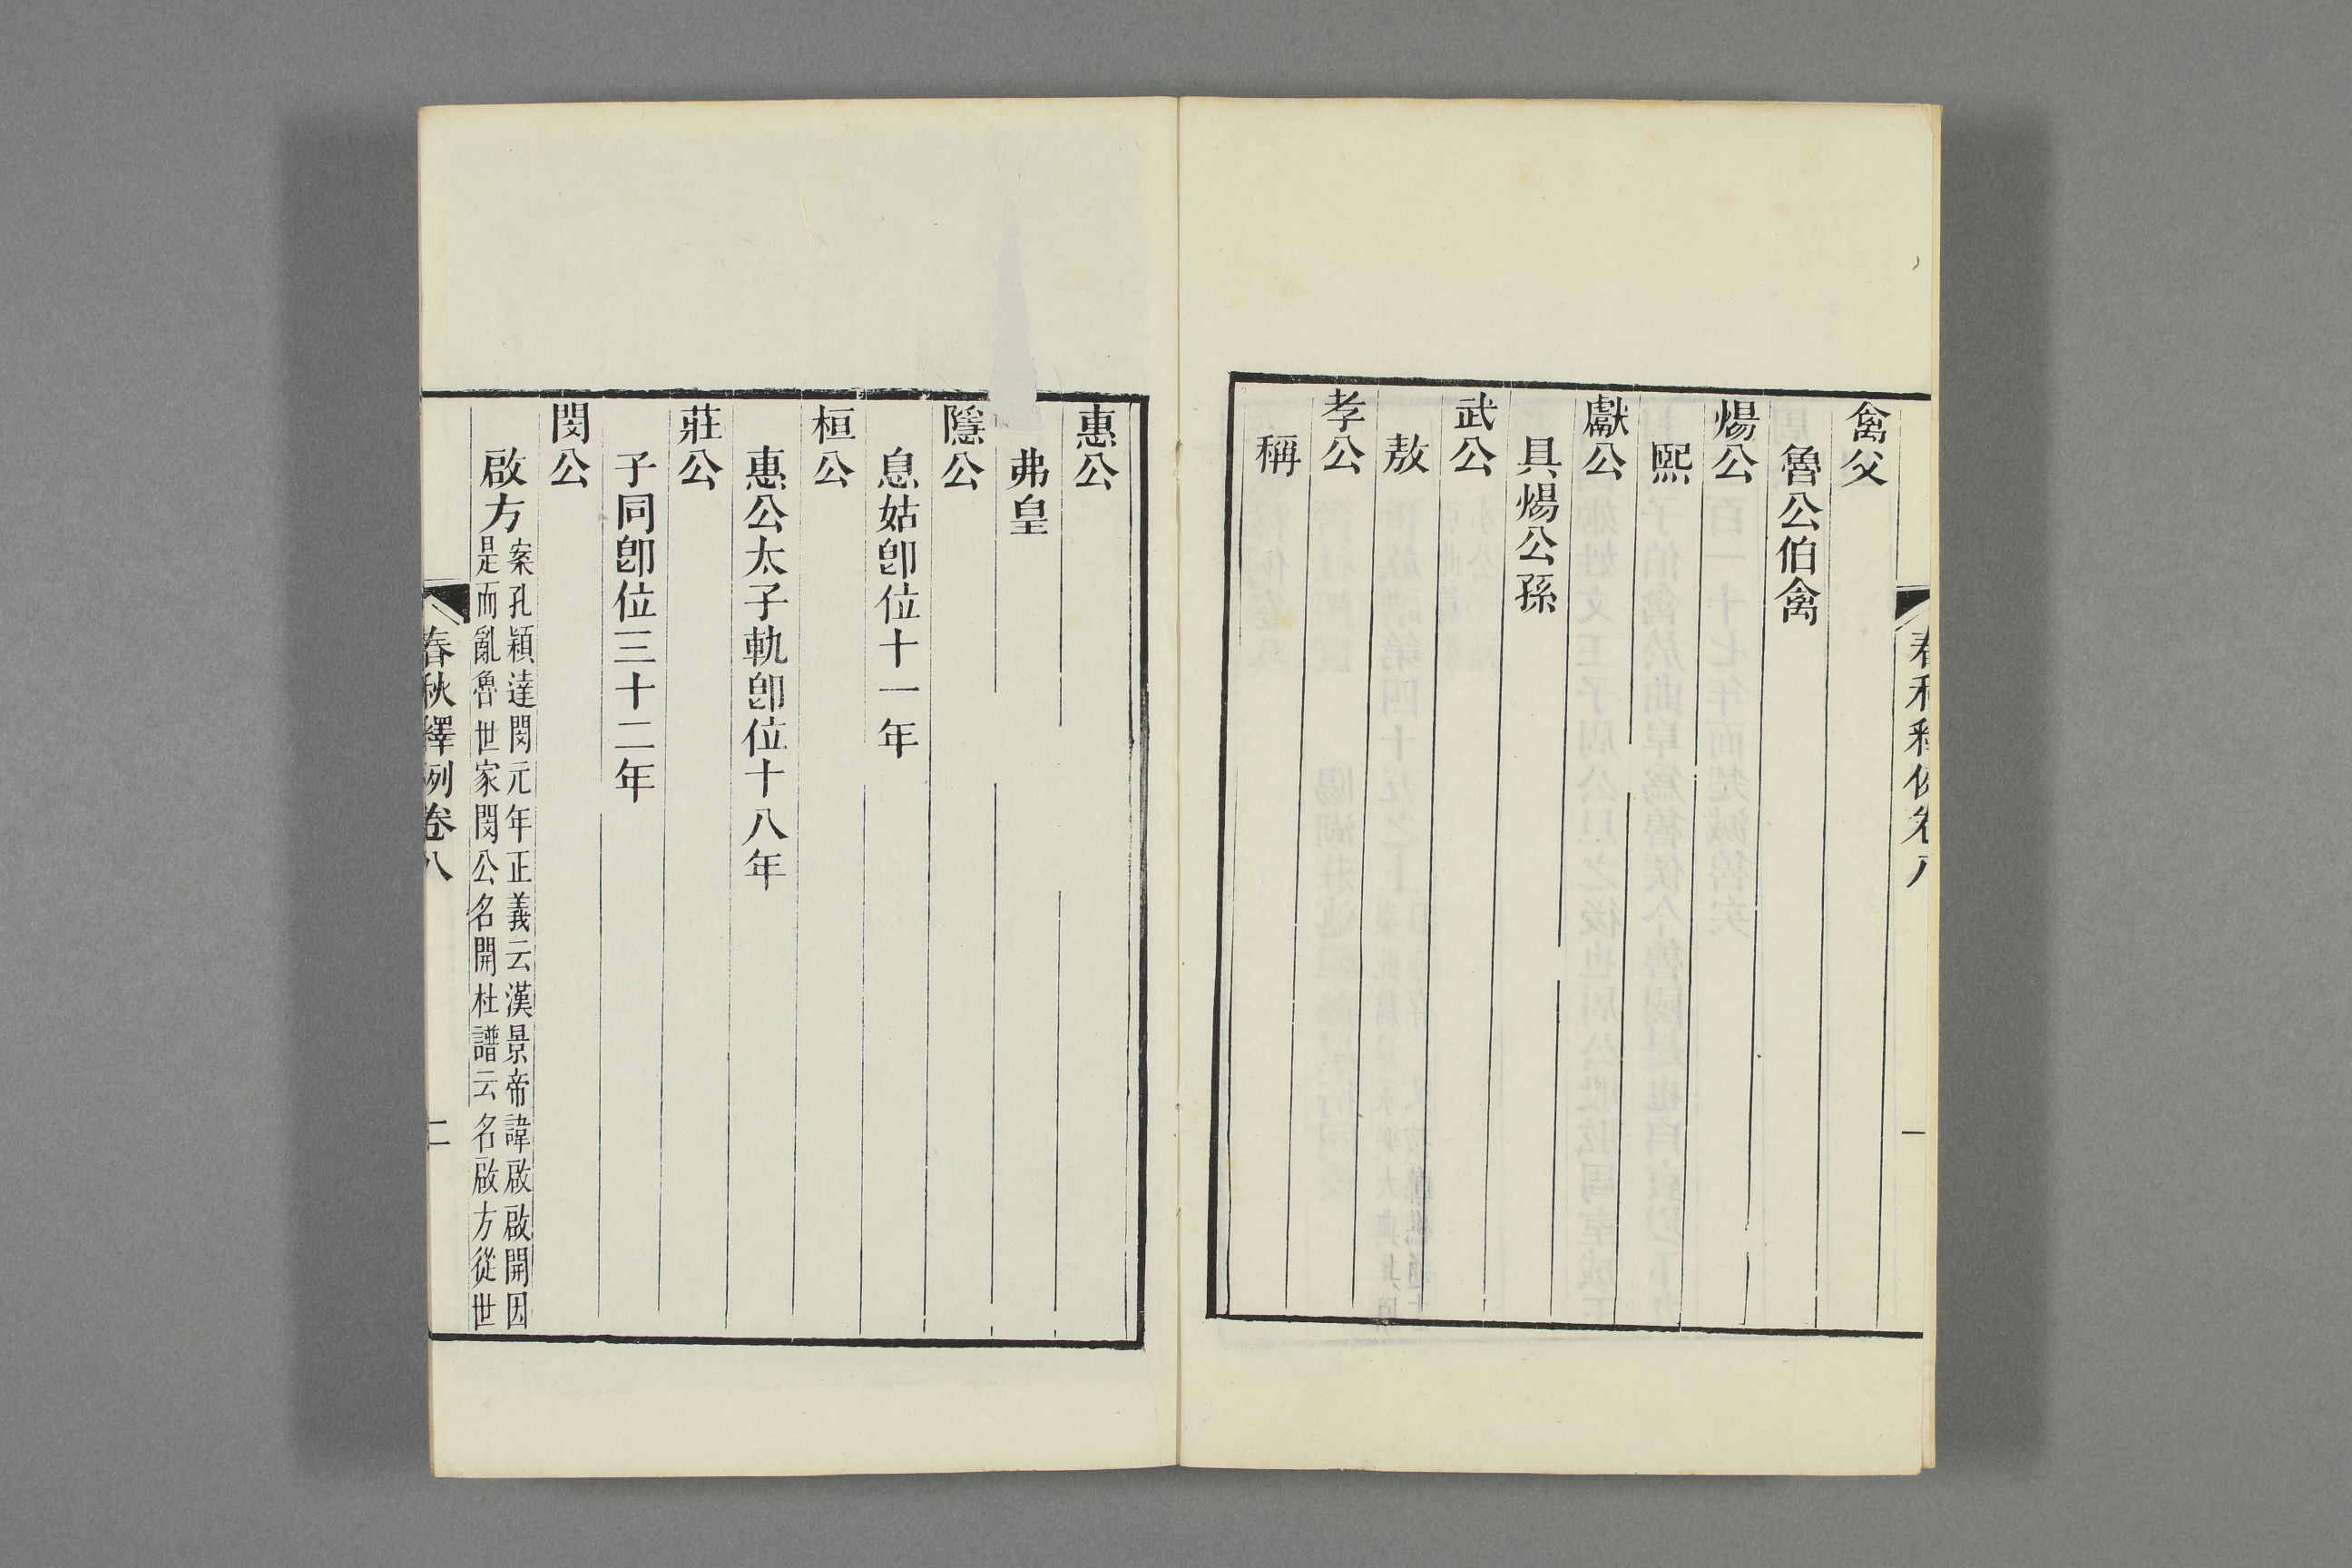 春秋釋例卷八
一
禽父
魯公伯禽
煬公
熙
獻公
具煬公孫
武公
敖
孝公
稱
惠公
弗皇
隱公
息姑卽位十一年
桓公
惠公太子軌卽位十八年
莊公
子同卽位三十二年
閔公
啟方案孔穎達閔元年正義云漢景帝諱啟啟開因
是而亂魯世家閔公名開杜譜云名啟方從世
春秋釋例卷八
二